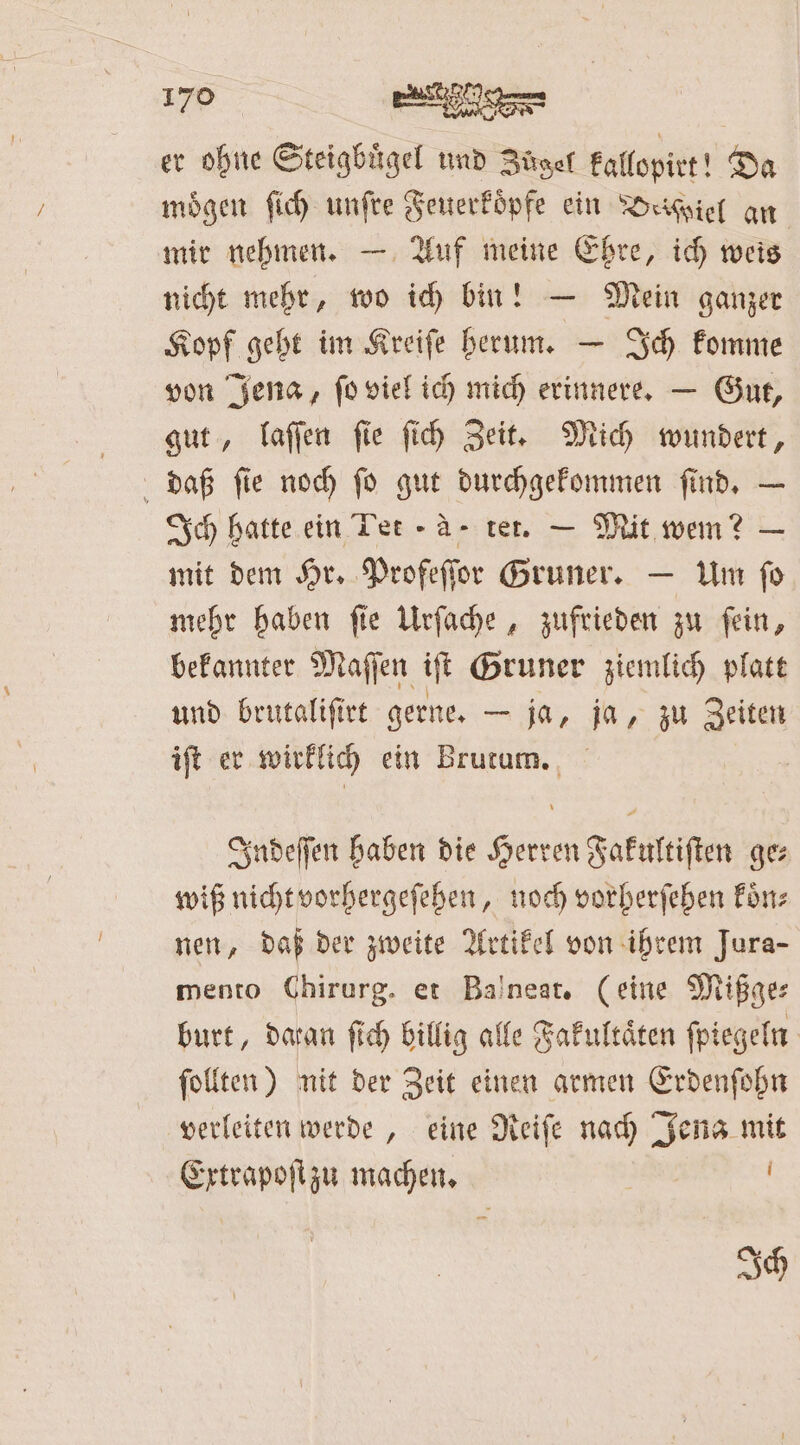 170
er ohne Steigbügel und Zügel kallopirt! Da
mögen ſich unſre Feuerköpfe ein Beiſpiel an
mir nehmen. — Auf meine Ehre, ich weis
nicht mehr, wo ich bin! — Mein ganzer
Kopf geht im Kreiſe herum. — Ich komme
von Jena, ſo viel ich mich erinnere. — Gut,
gut, laſſen ſie ſich Zeit. Mich wundert,
daß ſie noch ſo gut durchgekommen ſind. —
Ich hatte ein Tet - à - tet. — Mit wem? —
mit dem Hr. Profeſſor Gruner. — Um ſo
mehr haben ſie Urſache, zufrieden zu ſein,
bekannter Maſſen iſt Gruner ziemlich platt
und brutaliſirt gerne. — ja, ja, zu Zeiten
iſt er wirklich ein Brutum.
Indeſſen haben die Herren Fakultiſten ge-
wiß nicht vorhergeſehen, noch vorherſehen kön-
nen, daß der zweite Artikel von ihrem Jura-
mento Chirurg. et Balneat. (eine Mißge-
burt, daran ſich billig alle Fakultäten ſpiegeln
ſollten) mit der Zeit einen armen Erdenſohn
verleiten werde, eine Reiſe nach Jena mit
Extrapoſt zu machen.
Ich